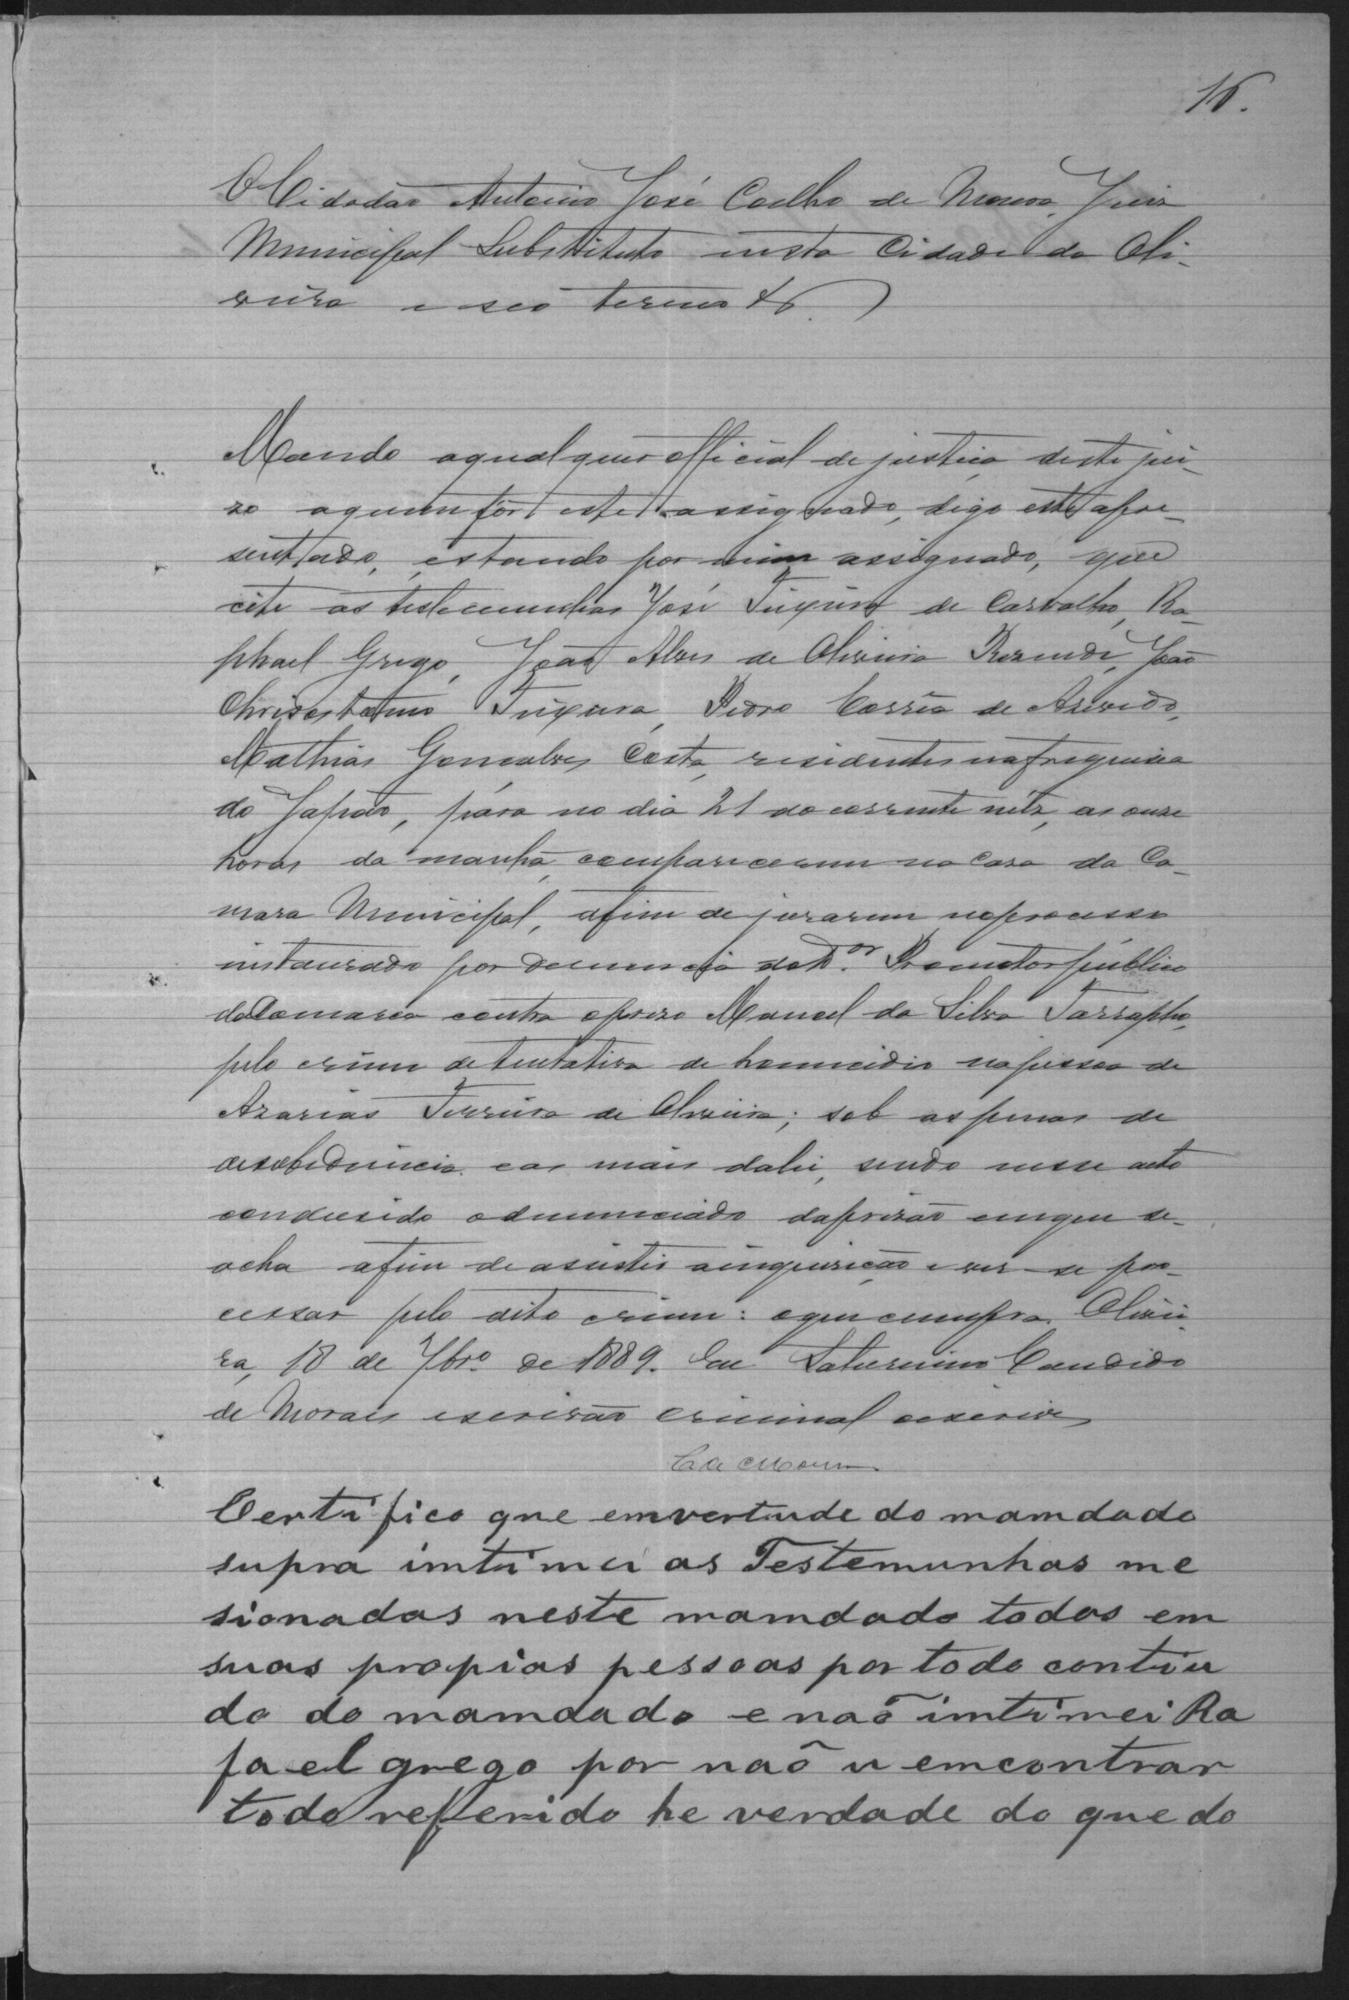 16.
O Cidadão Antonio José Coelho de Moura, Juiz
Municipal Substituto nesta Cidade da Oli-
veira e seo termo &
Mando aqualquer official de justiça deste jui-
zo aquem fôr este assignado, digo este apre-
sentado, estando por mim assignado, que
cite as testemunhas José Teixeira de Carvalho, Ra-
phael Grego, João Alves de Oliveira Rezende, João
Chrisostomo Teixeira, Pedro Corrêa de Azevedo,
Mathias Gonçalves Costa, residentes nafreguezia
do Japão, para no dia 21 do corrente mêz, as onze
horas da manhã, comparecerem na Casa da Ca-
mara Municipal, afim de jurarem noprocesso
instaurado por denuncia do Dr. Promotor publico
da Comarca contra opreso Manoel da Silva Tarrapho,
pelo crime de tentativa de homicidio napessoa de
Azarias Ferreira de Oliveira; sob as penas de
desobediencia eas mais dalei, sendo nesse acto
condusido odenunciado daprizão emque se-
acha afim de assistir ainquirição e ver-se pro-
cessar pelo dito crime: oque cumpra. Olivei-
ra, 18 de 7br.o de 1889. Eu Saturnino Candido
de Morais escrivão criminal oescrivi
C. de Moura
Certifico que emvertude do mamdado
supra imtimei as Testemunhas me
sionadas neste mamdado todas em
suas propias pessoas por todo contiu
do do mamdado enaõ imtimei Ra
fael grego por naõ u emcontrar
todo referido he verdade do que do